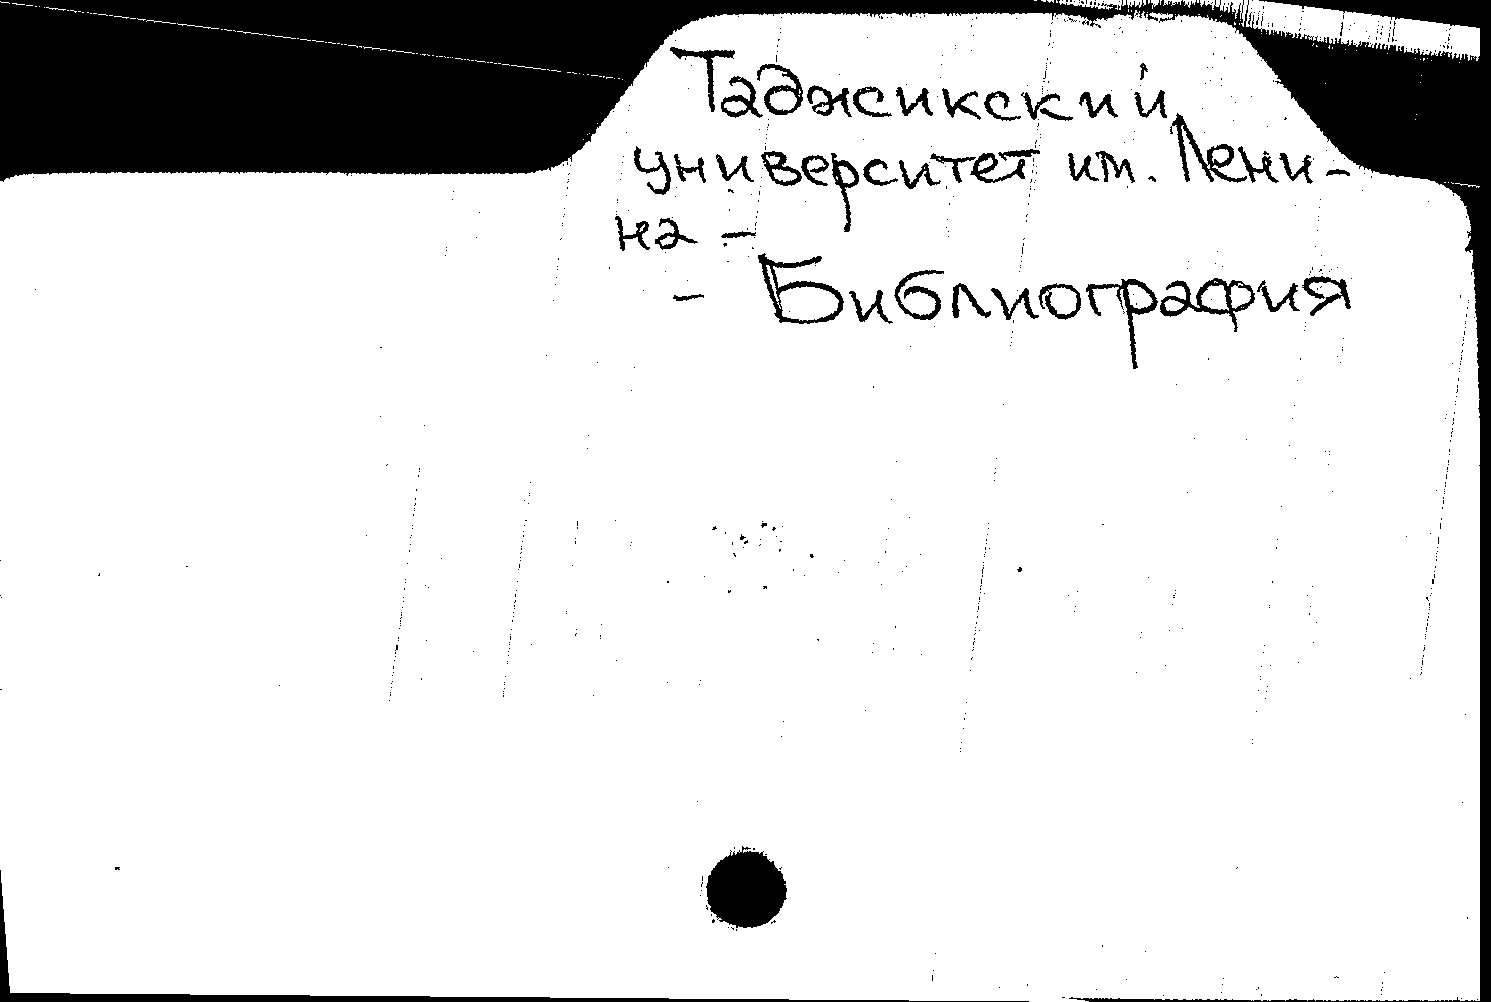 Таджикский
университет им. Лени-
на -
- Библиография